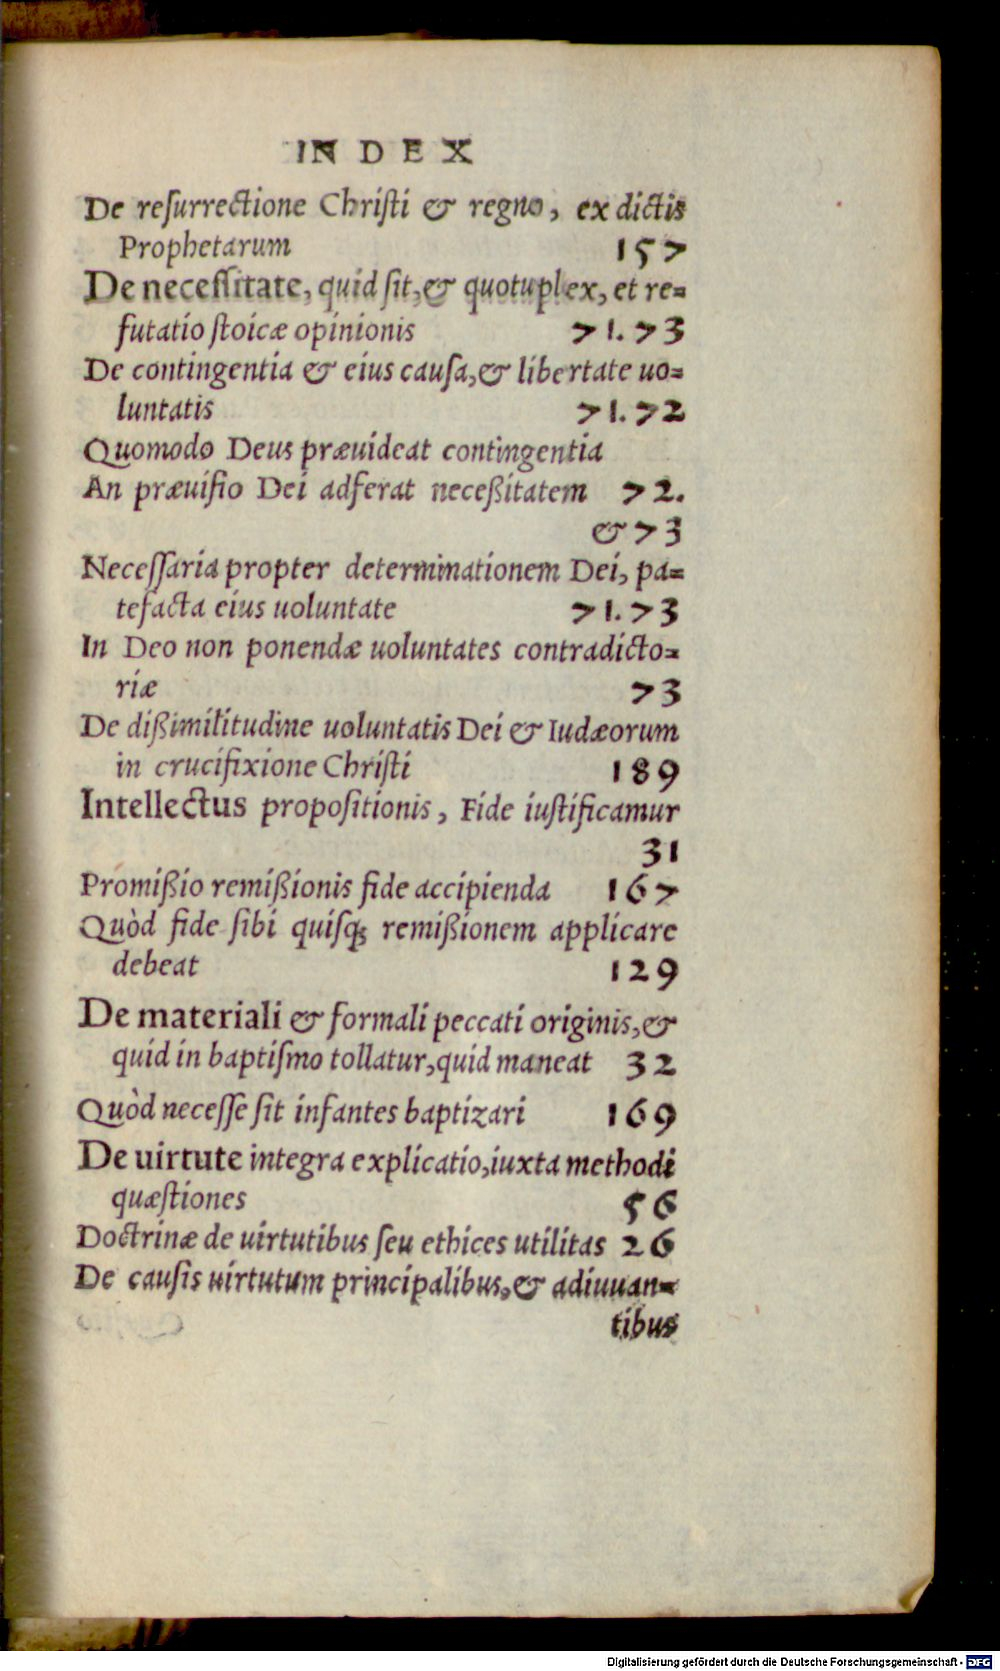 INDEX
De resurrectione Christi & regno, ex dictis
Prophetarum 157
De necessitate, quid sit, & quotuplex, et re=
futatio stoicæ opinionis 71. 73
De contingentia & eius causa, & libertate uo=
luntatis 71. 72
Quomodo Deus præuideat contingentia
An præuisio Dei adferat neceßitatem 72.
& 73
Necessaria propter determinationem Dei, pa=
tefacta eius uoluntate 71. 73
In Deo non ponendæ uoluntates contradicto=
riæ 73
De dißimilitudine uoluntatis Dei & Iudæorum
in crucifixione Christi 189
Intellectus propositionis, Fide iustificamur
31
Promißio remißionis fide accipienda 167
Quòd fide sibi quisq; remißionem applicare
debeat 129
De materiali & formali peccati originis, &
quid in baptismo tollatur, quid maneat 32
Quòd necesse sit infantes baptizari 169
De uirtute integra explicatio, iuxta methodi
quæstiones 56
Doctrinæ de uirtutibus seu ethices utilitas 26
De causis uirtutum principalibus, & adiuuan=
tibus
Digitalisierung gefördert durch die Deutsche Forschungsgemeinschaft - DFG